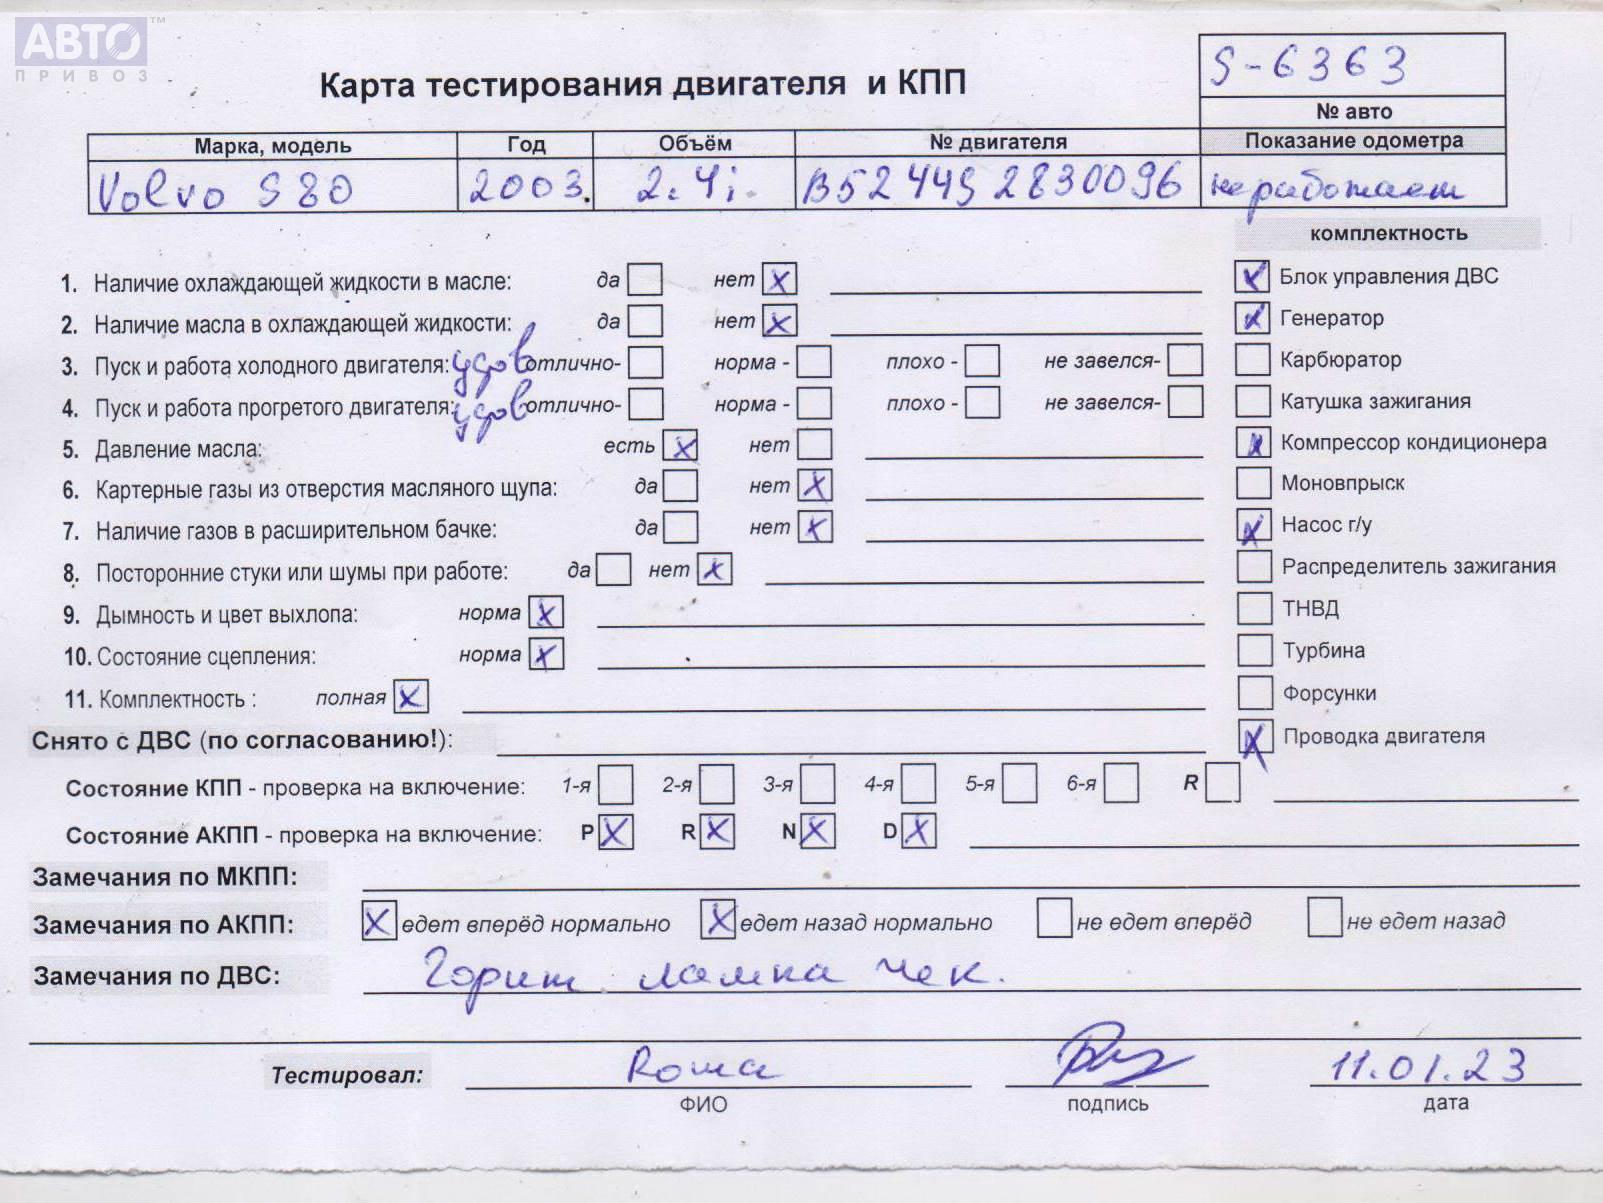 АВТО™
ПРИВОЗ
S-6363
Карта тестирования двигателя и КПП
№ авто
Марка, модель Год Объём № двигателя Показание одометра
Volvo S80 2003. 2.4i. B5244S 2830096 не работает
комплектность
1. Наличие охлаждающей жидкости в масле: да нет X
Блок управления ДВС
2. Наличие масла в охлаждающей жидкости: да нет X
Генератор
3. Пуск и работа холодного двигателя: удов отлично- норма - плохо - не завелся-
Карбюратор
4. Пуск и работа прогретого двигателя: удов отлично- норма - плохо - не завелся-
Катушка зажигания
5. Давление масла: есть X нет
Компрессор кондиционера
6. Картерные газы из отверстия масляного щупа: да нет X
Моновпрыск
7. Наличие газов в расширительном бачке: да нет X
Насос г/у
8. Посторонние стуки или шумы при работе: да нет X
Распределитель зажигания
9. Дымность и цвет выхлопа: норма X
ТНВД
10. Состояние сцепления: норма X
Турбина
11. Комплектность : полная X
Форсунки
Снято с ДВС (по согласованию!):
Проводка двигателя
Состояние КПП - проверка на включение: 1-я 2-я 3-я 4-я 5-я 6-я R
Состояние АКПП - проверка на включение: P X R X N X D X
Замечания по МКПП:
Замечания по АКПП: X едет вперёд нормально X едет назад нормально не едет вперёд не едет назад
Замечания по ДВС: Горит лампа чек.
Тестировал: Рома 11.01.23
ФИО подпись дата